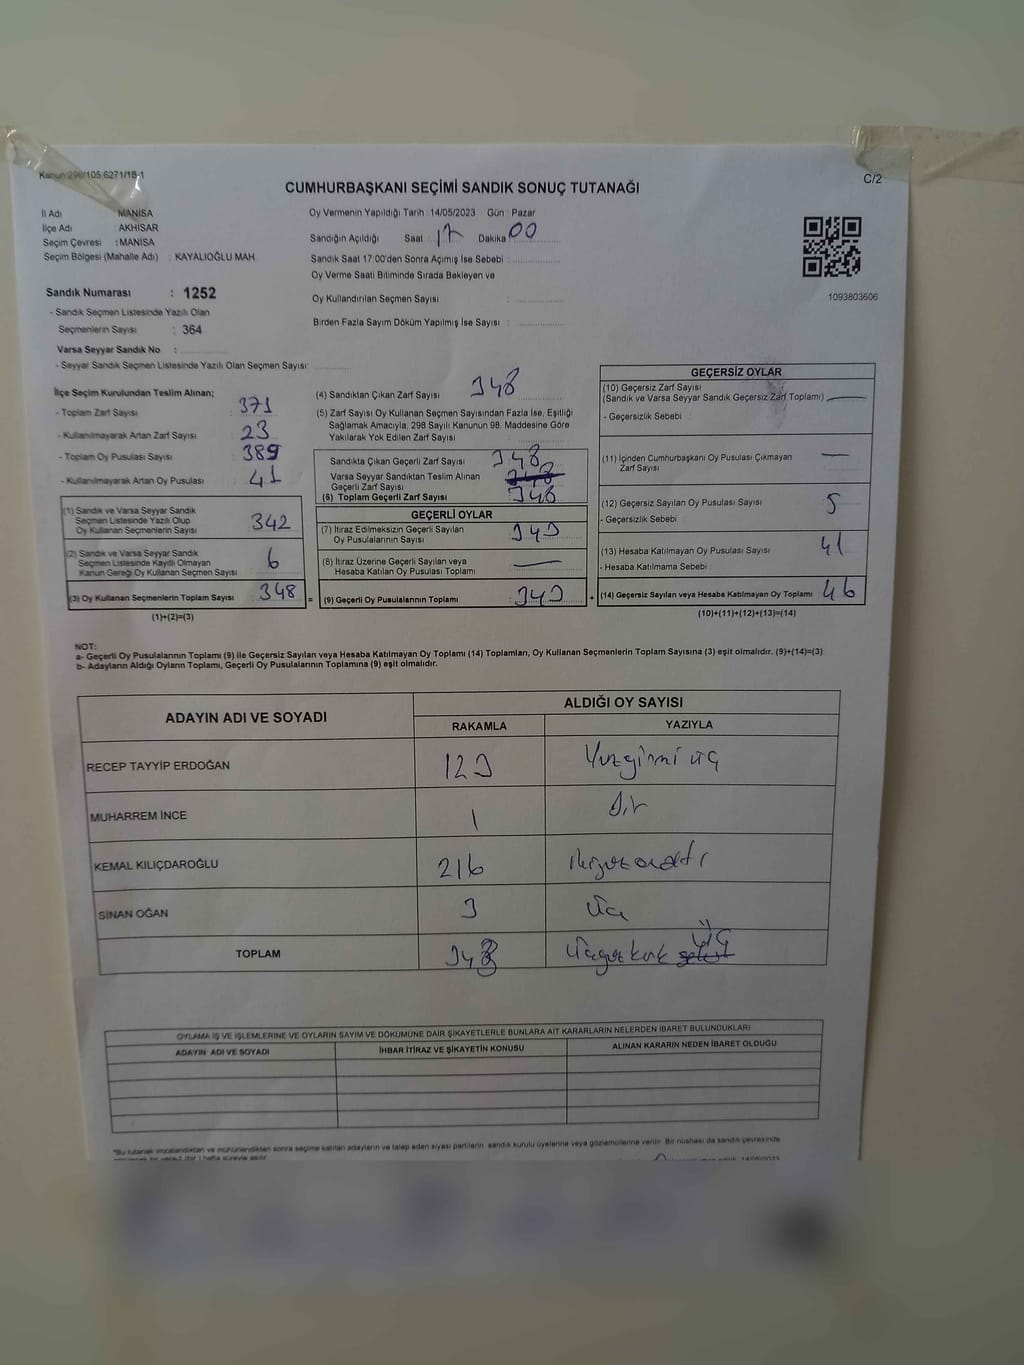 Kanun:298/105,6271/18-1
C/2
CUMHURBAŞKANI SEÇİMİ SANDIK SONUÇ TUTANAĞI
İl Adı : MANİSA
İlçe Adı : AKHİSAR
Seçim Çevresi : MANİSA
Seçim Bölgesi (Mahalle Adı) : KAYALIOĞLU MAH.
Sandık Numarası : 1252
- Sandık Seçmen Listesinde Yazılı Olan
Seçmenlerin Sayısı : 364
Varsa Seyyar Sandık No :
- Seyyar Sandık Seçmen Listesinde Yazılı Olan Seçmen Sayısı:
Oy Vermenin Yapıldığı Tarih :14/05/2023 Gün : Pazar
Sandığın Açıldığı Saat : 17 Dakika: 00
Sandık Saat 17:00'den Sonra Açımış İse Sebebi :
Oy Verme Saati Bitiminde Sırada Bekleyen ve
Oy Kullandırılan Seçmen Sayısı :
Birden Fazla Sayım Döküm Yapılmış İse Sayısı :
1093803606
İlçe Seçim Kurulundan Teslim Alınan;
- Toplam Zarf Sayısı : 371
- Kullanılmayarak Artan Zarf Sayısı : 23
- Toplam Oy Pusulası Sayısı : 389
- Kullanılmayarak Artan Oy Pusulası : 41
(1) Sandık ve Varsa Seyyar Sandık
Seçmen Listesinde Yazılı Olup
Oy Kullanan Seçmenlerin Sayısı : 342
(2) Sandık ve Varsa Seyyar Sandık
Seçmen Listesinde Kayıtlı Olmayan
Kanun Gereği Oy Kullanan Seçmen Sayısı : 6
(3) Oy Kullanan Seçmenlerin Toplam Sayısı : 348 =
(1)+(2)=(3)
(4) Sandıktan Çıkan Zarf Sayısı : 348
(5) Zarf Sayısı Oy Kullanan Seçmen Sayısından Fazla İse, Eşitliği
Sağlamak Amacıyla, 298 Sayılı Kanunun 98. Maddesine Göre
Yakılarak Yok Edilen Zarf Sayısı :
Sandıkta Çıkan Geçerli Zarf Sayısı : 348
Varsa Seyyar Sandıktan Teslim Alınan
Geçerli Zarf Sayısı
(6) Toplam Geçerli Zarf Sayısı : 348
GEÇERLİ OYLAR
(7) İtiraz Edilmeksizin Geçerli Sayılan
Oy Pusulalarının Sayısı : 343
(8) İtiraz Üzerine Geçerli Sayılan veya
Hesaba Katılan Oy Pusulası Toplamı : —
(9) Geçerli Oy Pusulalarının Toplamı : 343 +
GEÇERSİZ OYLAR
(10) Geçersiz Zarf Sayısı
(Sandık ve Varsa Seyyar Sandık Geçersiz Zarf Toplamı) : —
- Geçersizlik Sebebi :
(11) İçinden Cumhurbaşkanı Oy Pusulası Çıkmayan : —
Zarf Sayısı
(12) Geçersiz Sayılan Oy Pusulası Sayısı : 5
- Geçersizlik Sebebi :
(13) Hesaba Katılmayan Oy Pusulası Sayısı : 41
- Hesaba Katılmama Sebebi :
(14) Geçersiz Sayılan veya Hesaba Katılmayan Oy Toplamı : 46
(10)+(11)+(12)+(13)=(14)
NOT:
a- Geçerli Oy Pusulalarının Toplamı (9) ile Geçersiz Sayılan veya Hesaba Katılmayan Oy Toplamı (14) Toplamları, Oy Kullanan Seçmenlerin Toplam Sayısına (3) eşit olmalıdır. (9)+(14)=(3)
b- Adayların Aldığı Oyların Toplamı, Geçerli Oy Pusulalarının Toplamına (9) eşit olmalıdır.
ADAYIN ADI VE SOYADI ALDIĞI OY SAYISI
RAKAMLA YAZIYLA
RECEP TAYYİP ERDOĞAN 123 Yüzyirmi üç
MUHARREM İNCE 1 Bir
KEMAL KILIÇDAROĞLU 216 ikiyüzonaltı
SİNAN OĞAN 3 üç
TOPLAM 343 üçyüzkırk üç
OYLAMA İŞ VE İŞLEMLERİNE VE OYLARIN SAYIM VE DÖKÜMÜNE DAİR ŞİKAYETLERLE BUNLARA AİT KARARLARIN NELERDEN İBARET BULUNDUKLARI
ADAYIN ADI VE SOYADI İHBAR İTİRAZ VE ŞİKAYETİN KONUSU ALINAN KARARIN NEDEN İBARET OLDUĞU
*Bu tutanak imzalandıktan ve mühürlendikten sonra seçime katılan adayların ve talep eden siyasi partilerin sandık kurulu üyelerine veya gözlemcilerine verilir. Bir nüshası da sandık çevresinde